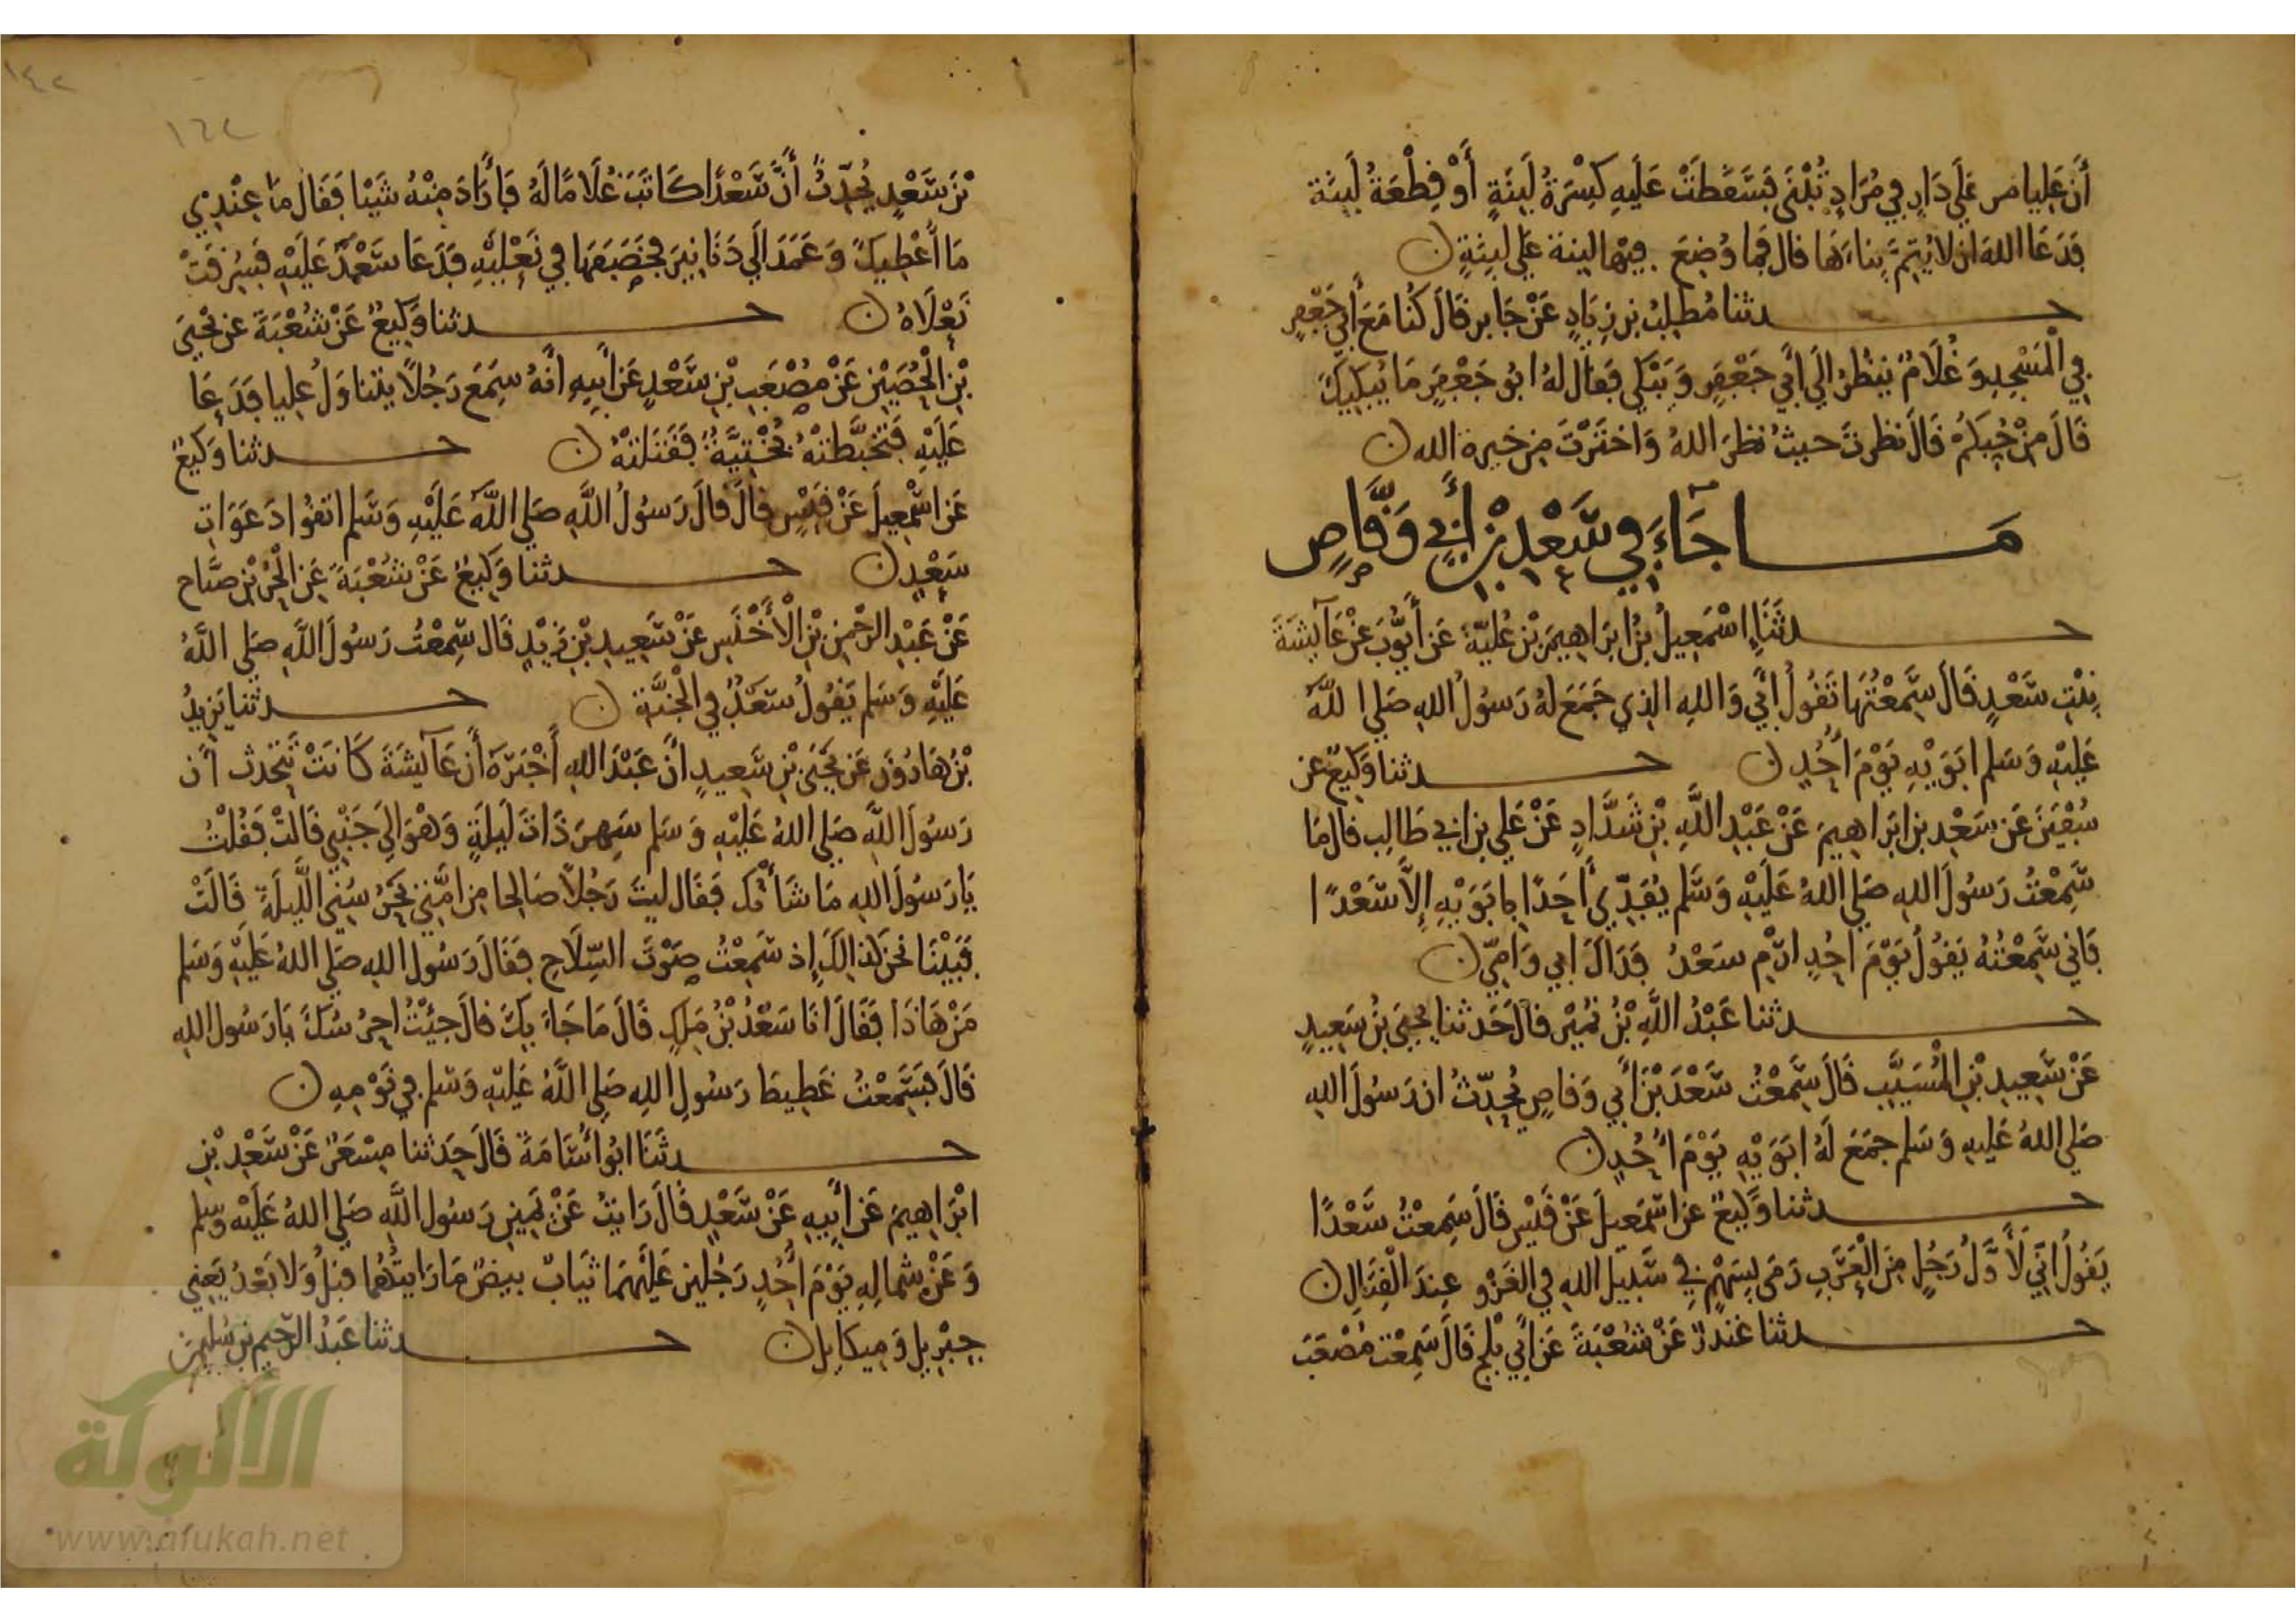 أَنَّ عَلِيا مر عَلَى دَارٍ في مُرَادٍ تُبْنَى فَسَقَطَتْ عَلَيهِ كِسْرَةُ لَبِنَةٍ أَوْ قِطْعَةُ لَبِنَة
فَدَعَا اللهَ ان لا يُتِمَّ بِناءَهَا قال فما وُضِعَ فيها لبنة عَلَى لَبِنَةٍ ن
حدثنا مُطلِبُ بن زِيَادٍ عَنْ جَابر قَالَ كُنا مَعَ أَبي جَعْفَرٍ
في الْمَسْجِدِ وَغُلَامٌ يَنظُرُ الَى أَبي جَعْفَرٍ وَيَبْكي فَقالَ لهُ ابُو جَعْفَرٍ مَا يُبكيكَ
قَالَ مِنْ حُبِّكُمْ قَالَ نظرتَ حيثُ نظرَ اللهُ وَاختَرْتَ من خيرة الله ن
مَا جَاءَ في سَعْدِ بْنِ أَبي وَقَّاصٍ
حدثَنَا اسْمَعِيلُ بْنُ ابرَاهِيمَ بْنِ عُلَيّةَ عَنْ أَيُّوبَ عَنْ عَآئِشَةَ
بِنْتِ سَعْدٍ قَالَ سَمِعْتُهَا تَقُولُ أَبي وَاللهِ الذي جَمَعَ لَهُ رَسُولُ اللهِ صَلى اللهُ
عَلَيْهِ وَسَلم ابَوَيْهِ يَوْمَ أُحُدٍ ن حدثنا وَكِيعٌ عن
سُفْيَنَ عَن سَعْدِ بن ابرَاهِيمَ عَنْ عَبْدِ اللَّهِ بْنِ شَدَّادٍ عَنْ عَلي بن ابي طَالِب قال مَا
سَمِعْتُ رَسُولَ اللهِ صَلى اللهُ عَلَيْهِ وَسَلم يُفَدّي أَحَدًا بِابَوَيْهِ إِلَّا سَعْدًا
فَاني سَمِعْتُهُ يَقُولُ يَوْمَ احُدٍ ارْمِ سَعْدُ فِدَاكَ ابي وَامّي ن
حدثنا عَبْدُ اللَّهِ بْنُ نُمَيْر قالَ حَدثنا يَحيَى بْنُ سَعِيدٍ
عَنْ سَعِيدِ بْنِ الْمُسَيَّبِ قَالَ سَمِعْتُ سَعْدَ بْنَ أَبي وَقاصٍ يُحَدّثُ ان رَسُولَ اللهِ
صَلى اللهُ عَلَيهِ وَسَلم جَمَعَ لَهُ ابَوَيْهِ يَوْمَ أُحُدٍ ن
حدثنا وَكِيعٌ عن اسْمَعِيلَ عَنْ قَيْسٍ قَالَ سَمِعْتُ سَعْدًا
يَقُولُ انّي لَأَوَّلُ رَجُلٍ مِنَ الْعَرَبِ رَمَى بِسَهْمٍ في سَبيلِ اللهِ في الغَزْوِ عِندَ الْقِتَالِ ن
حدثنا غندرٌ عَنْ شُعْبَةَ عَن ابي بَلْجٍ قَالَ سَمِعْت مُصْعَبَ
بْنَ سَعْدٍ يُحَدّثُ أَنَّ سَعْدًا كَاتَبَ غُلَامًا لَهُ فَأَرَادَ مِنْهُ شَيْئا فَقَالَ مَا عِنْدِي
مَا أُعْطِيكَ وَعَمَدَ الَى دَنَانِيرَ فَخَصَفَهَا في نَعْلَيْهِ فَدَعَا سَعْدٌ عَلَيْهِ فَسُرِقَتْ
نَعْلَاهُ ن حدثنا وَكِيعٌ عَنْ شُعْبَةَ عن يَحْيَى
بْنِ الْحُصَيْنِ عَنْ مُصْعَبِ بْنِ سَعْدٍ عَنْ أَبِيهِ أَنَّهُ سَمِعَ رَجُلًا يتناوَلُ عليا فَدَعَا
عَلَيْهِ فَتَخَبَّطَتْهُ بُخْتِيَّةٌ فَقَتَلَتْهُ ن حدثنا وَكِيعٌ
عَنِ اسْمَعِيلَ عَنْ قَيْسٍ قَالَ قَالَ رَسُولُ اللَّهِ صَلى اللَّهُ عَلَيْهِ وَسَلم اتقُوا دَعَوَاتِ
سَعْدٍ ن حدثنا وَكِيعٌ عَنْ شُعْبَةَ عَنِ الْحُرّ بْنِ صيَّاح
عَنْ عَبْدِ الرَّحْمنِ بْنِ الْأَخْنَسِ عَنْ سَعِيدِ بْنِ زَيْدٍ قَالَ سَمِعْتُ رَسُولَ اللَّهِ صَلى اللَّهُ
عَلَيْهِ وَسَلم يَقُولُ سَعْدٌ في الْجَنَّةِ ن حدثنا يَزِيدُ
بْنُ هَارُونَ عَن يَحْيَى بْنِ سَعِيدٍ انَّ عَبْدَ اللهِ أَخْبَرَهُ أَن عَآئِشَةَ كَانَتْ تُحَدثُ أَن
رَسُولَ اللَّهِ صَلى اللهُ عَلَيْهِ وَسَلم سَهِرَ ذَاتَ لَيلَةٍ وَهْوَ الَى جَنْبِي قَالَتْ فَقُلْتُ
يَا رَسُولَ اللهِ مَا شَأْنُكَ فَقَالَ لَيتَ رَجُلًا صَالِحا من امَّتي يَحْرُسُنِي اللَّيلَةَ قَالَتْ
فَبَيْنَا نحن كَذالِكَ إِذ سَمِعْتُ صَوْتَ السِّلَاحِ فَقَالَ رَسُولُ اللهِ صَلى اللهُ عَلَيْهِ وَسَلم
مَنْ هَاذَا فَقَالَ انَا سَعْدُ بْنُ مَلِكٍ قَالَ مَا جَاءَ بِكَ قالَ جئْتُ احرُسُكَ يَا رَسُولَ اللهِ
قَالَ فَسَمِعْتُ غَطِيطَ رَسُولِ اللهِ صَلى اللَّهُ عَلَيْهِ وَسَلم في نَوْمِهِ ن
حدثَنَا ابُو أُسَامَةَ قَالَ حَدثنا مِسْعَرٌ عَنْ سَعْدِ بْنِ
ابْرَاهِيمَ عَنْ أَبِيهِ عَنْ سَعْدٍ قَالَ رَايتُ عَنْ يَمِينِ رَسُولِ اللَّهِ صَلى اللهُ عَلَيْهِ وسلم
وَعَنْ شِمالِهِ يَوْمَ أُحُدٍ رَجُلين عَلَيْهِمَا ثيَابٌ بيضٌ مَا رَايتُهُمَا قبلُ وَلا بَعْدُ يَعني
جِبْرِيلَ وَمِيكائِلَ ن حدثنا عَبْدُ الرَّحِيمِ بن سُلَيْمَنَ
١٤٢
١٤٢
الألوكة
www.alukah.net